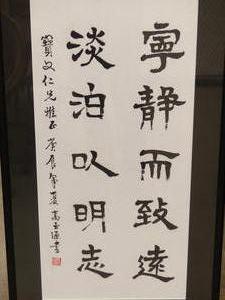 寧靜而致遠
淡泊以明志
寶文仁兄雅正 庚辰年夏 高玉海書